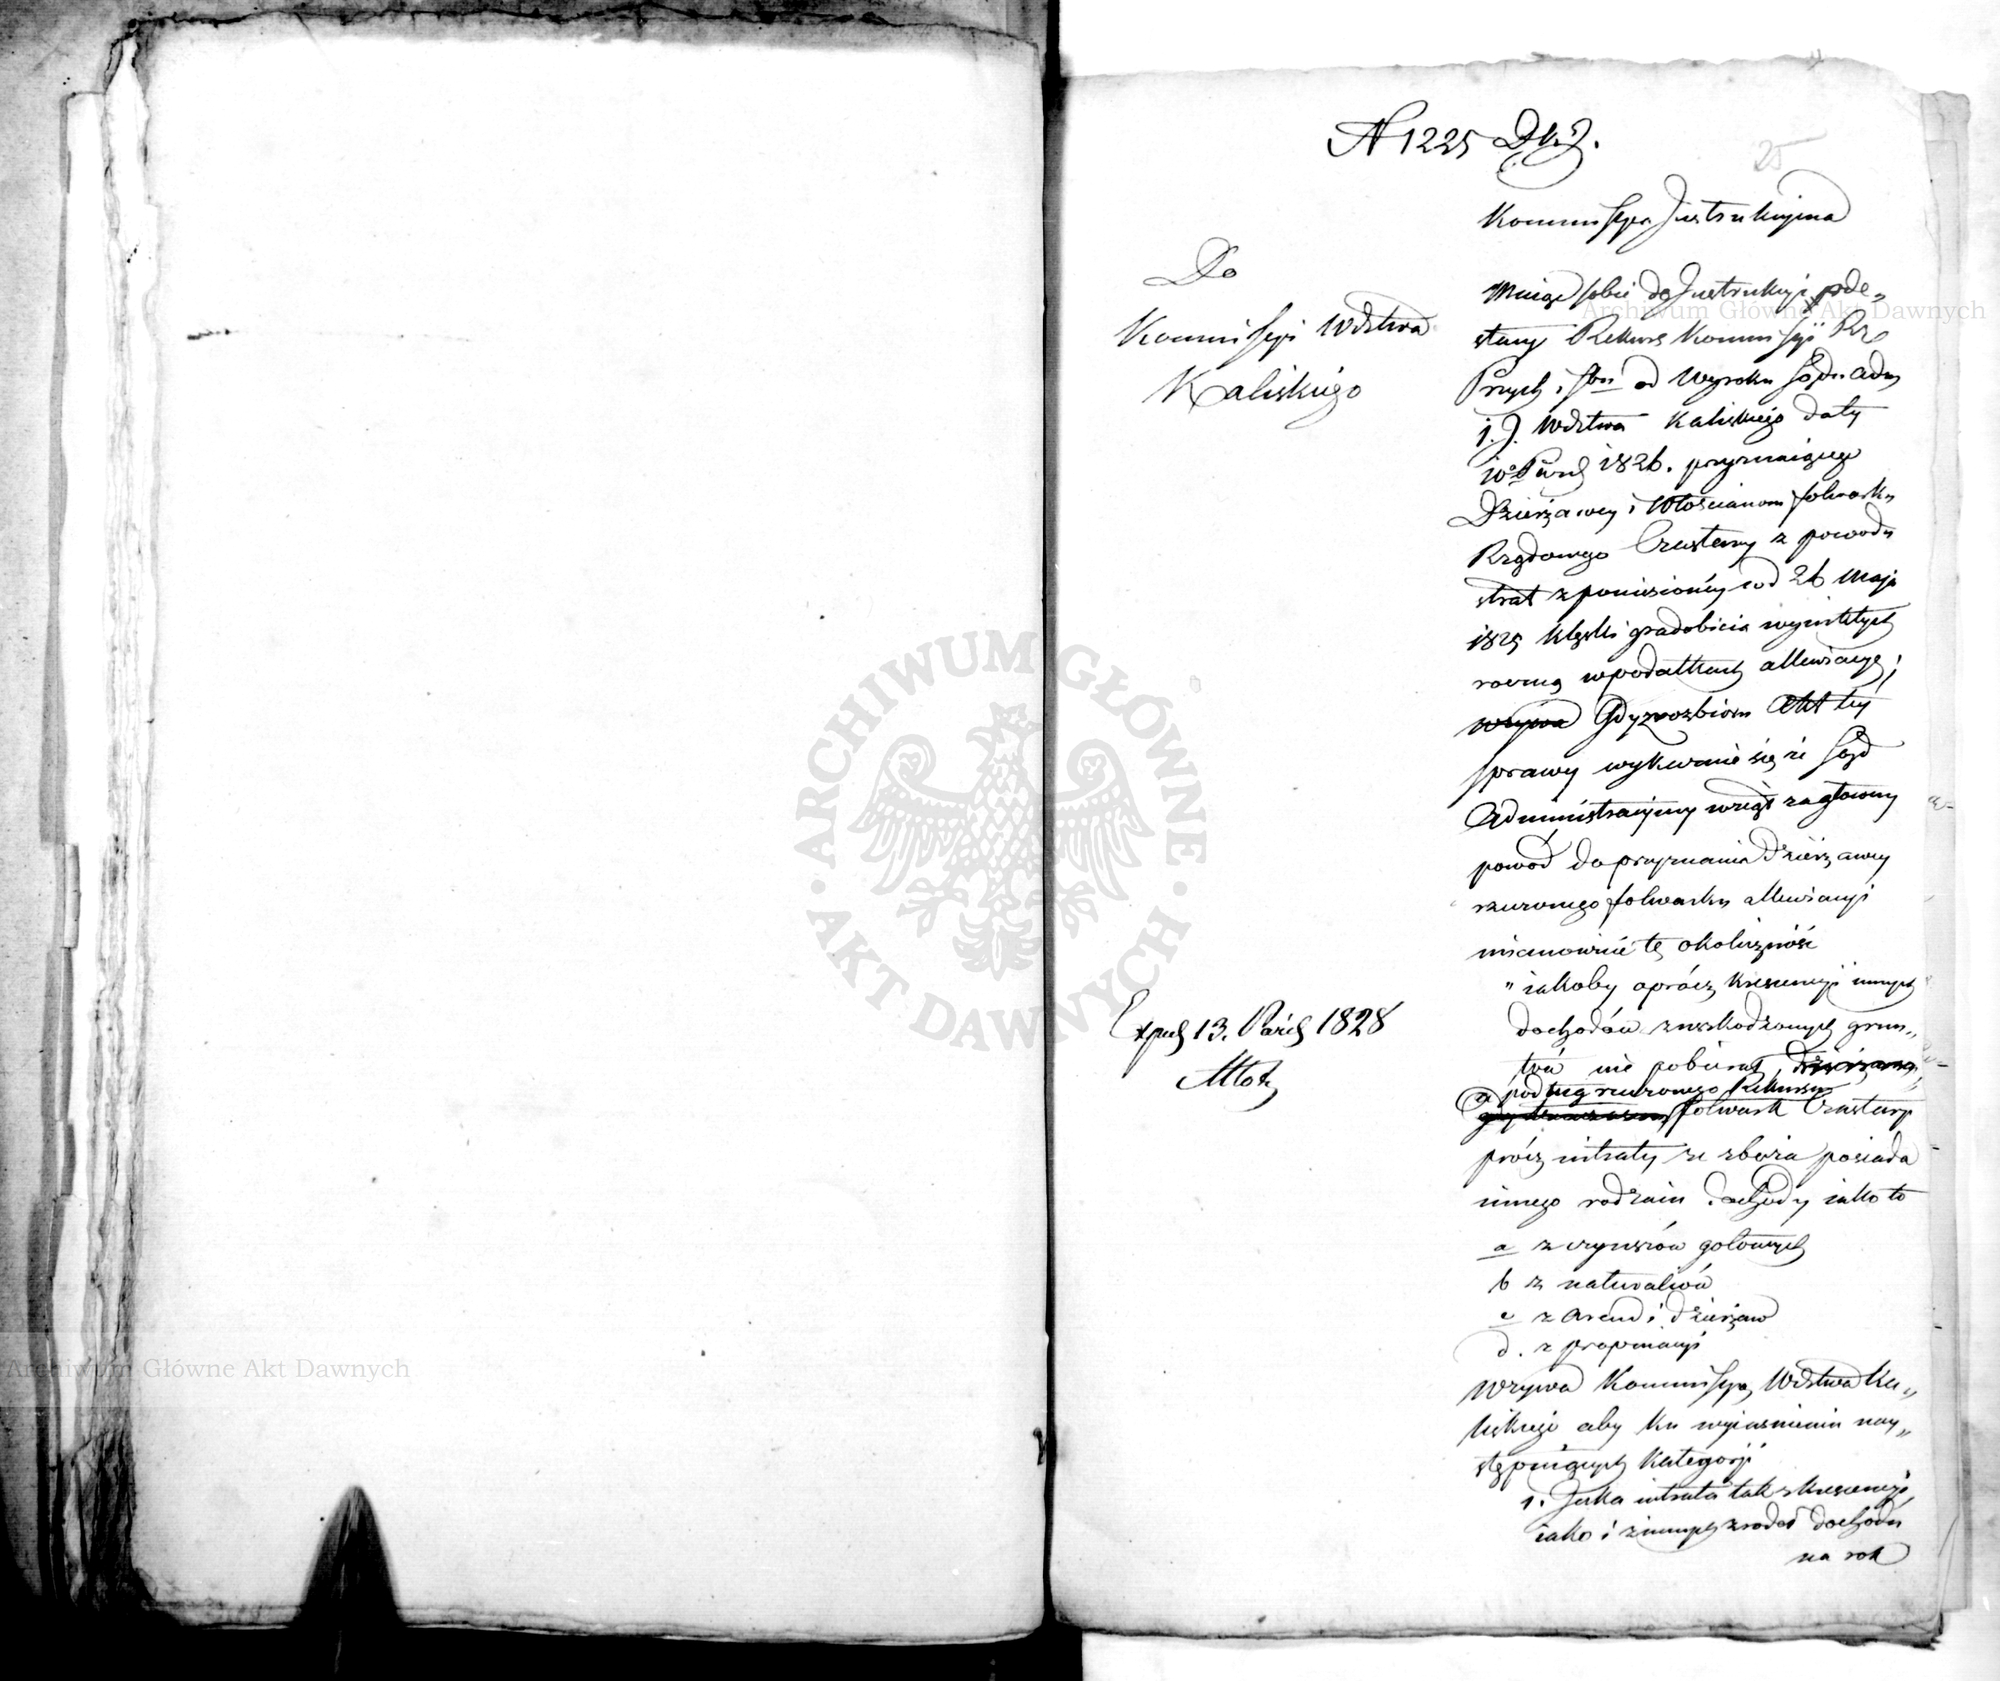 N 1225 
25
Kommissya Instrukcyjna
Do
Kommissyi Wdztwa
Kaliskiego
Maiąc sobie do Instrukcyi prze„
słany Rekurs Kommissyi Rz
Przych i Sbu od Wyroku Sądu Adm
Wdztwa Kaliskiego daty
1826. przyznaiącego
Dzierżawcy i Włościanom folwarku
Rządowego Czastary z powodu
strat z poniesionéy pod 26 Maja
1825 klęski gradobicia wynikłych
roczną w podatkach allewiacyę;
wzywa Gdy z rozbioru Akt tey
sprawy wykazuie się że Sąd
Administracyjny wziął za główny
powód do przyznania Dzierżawcy
rzeczonego folwarku allewiacyi
mianowicie tę okoliczność
" iakoby oprócz krescencyi innych
dochodów z uszkodzonych grun„
tów nie pobierał, dzierżawca
a podług rzeczonego Rekursu
folwark Czastary
prócz intraty ze zboża posiada
innego rodzaiu dochody iako to
a z czynszów gotowych
b z naturaliów
c z arend i dzierżaw
d. z propinacyi
Wzywa Kommissya Wdztwa Ka„
liskiego aby ku wyiaśnieniu nay„
stępuiących kategoryi
1. Jaka intrata tak z krescencyi
iako i z innych źrodeł dochodu
na rok
Exped 13. Paźd 1828
Archiwum Główne Akt Dawnych
Archiwum Główne Akt Dawnych
ARCHIWUM GŁÓWNE
AKT DAWNYCH